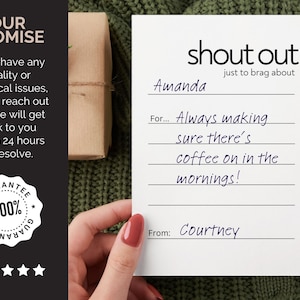 OUR
OMISE
have any
ality or
cal issues,
reach out
e will get
k to you
24 hours
esolve.
100%
shout out
just to brag about
Amanda
For... Always making
sure there's
coffee on in the
mornings!
From: Courtney